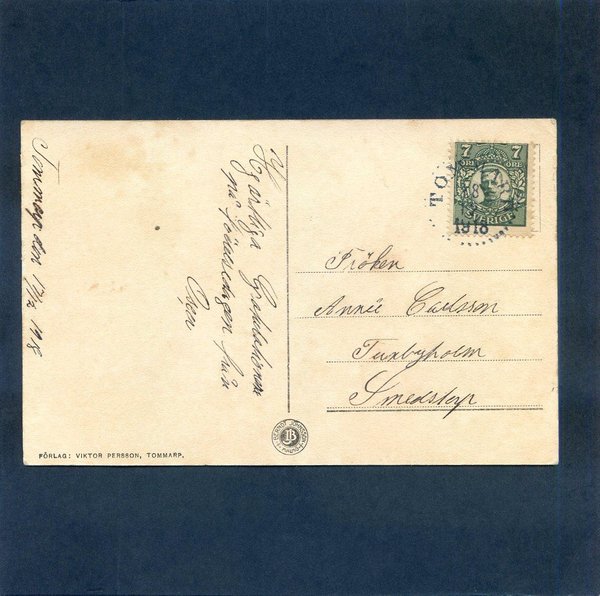 Tommarp den 17/2 1918
Hjärtliga Gratulationer
på födelsedagen från
7 7
ÖRE ÖRE
SVERIGE
TOMMARP
1918
Fröken
Annie Carlsson
Tuxbyholm
Smedstorp
FÖRLAG: VIKTOR PERSSON, TOMMARP.